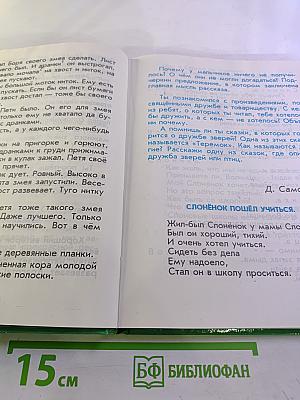 Боря своего змея сделать. Лист
него был. И дранки он выстрогал.
мочала на хвост и ниток, на
пускать.
большой моток ниток. Ему есть
пускать. Если бы он лист бумаги
хвост достал — тоже бы своего
Пети было. Он его для змея
ему не хватало да бу-
дранками.
есть, а у каждого чего-нибудь
на пригорке и горюют.
дранками к груди прижима-
в кулак зажал. Петя своё
дует. Ровный. Высоко в
змея запустили. Весе-
развевает. Туго нитку
тоже такого змея
Даже лучшего. Только
научились. Вот в чём
деревянные планки.
ненная кора молодой
полоски.
Почему у мальчиков ничего не получи-
лось? О чём они не могли догадаться? Под-
черкни предложение, в котором заключена
главная мысль рассказа.
Ты познакомился с произведениями, по-
свящёнными дружбе и товариществу. С кем
из ребят, о которых ты читал, тебе хотелось
бы дружить, а с кем — не хотелось?
А помнишь ли ты сказки, в которых го-
ворится о дружбе зверей? Одна из этих ска-
зок называется «Теремок». Какие ещё дру-
гие? Расскажи одну из сказок, где
дружба зверей или птиц.
Д. Само
СЛОНЁНОК ПОШЁЛ УЧИТЬСЯ.
Жил-был Слонёнок у мамы Сло
Был он хороший, тихий.
И очень хотел учиться.
Сидеть без дела
Ему надоело,
Стал он в школу проситься.
15 см
БФ БИБЛИОФАН